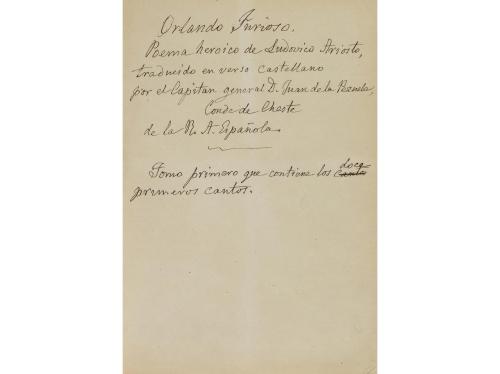 Orlando Furioso.
Poema heroico de Ludovico Ariosto,
traducido en verso castellano
por el Capitan general D. Juan de la Pezuela,
Conde de Cheste
de la R. A. Española.
Tomo primero que contiene los canto doce
primeros cantos.